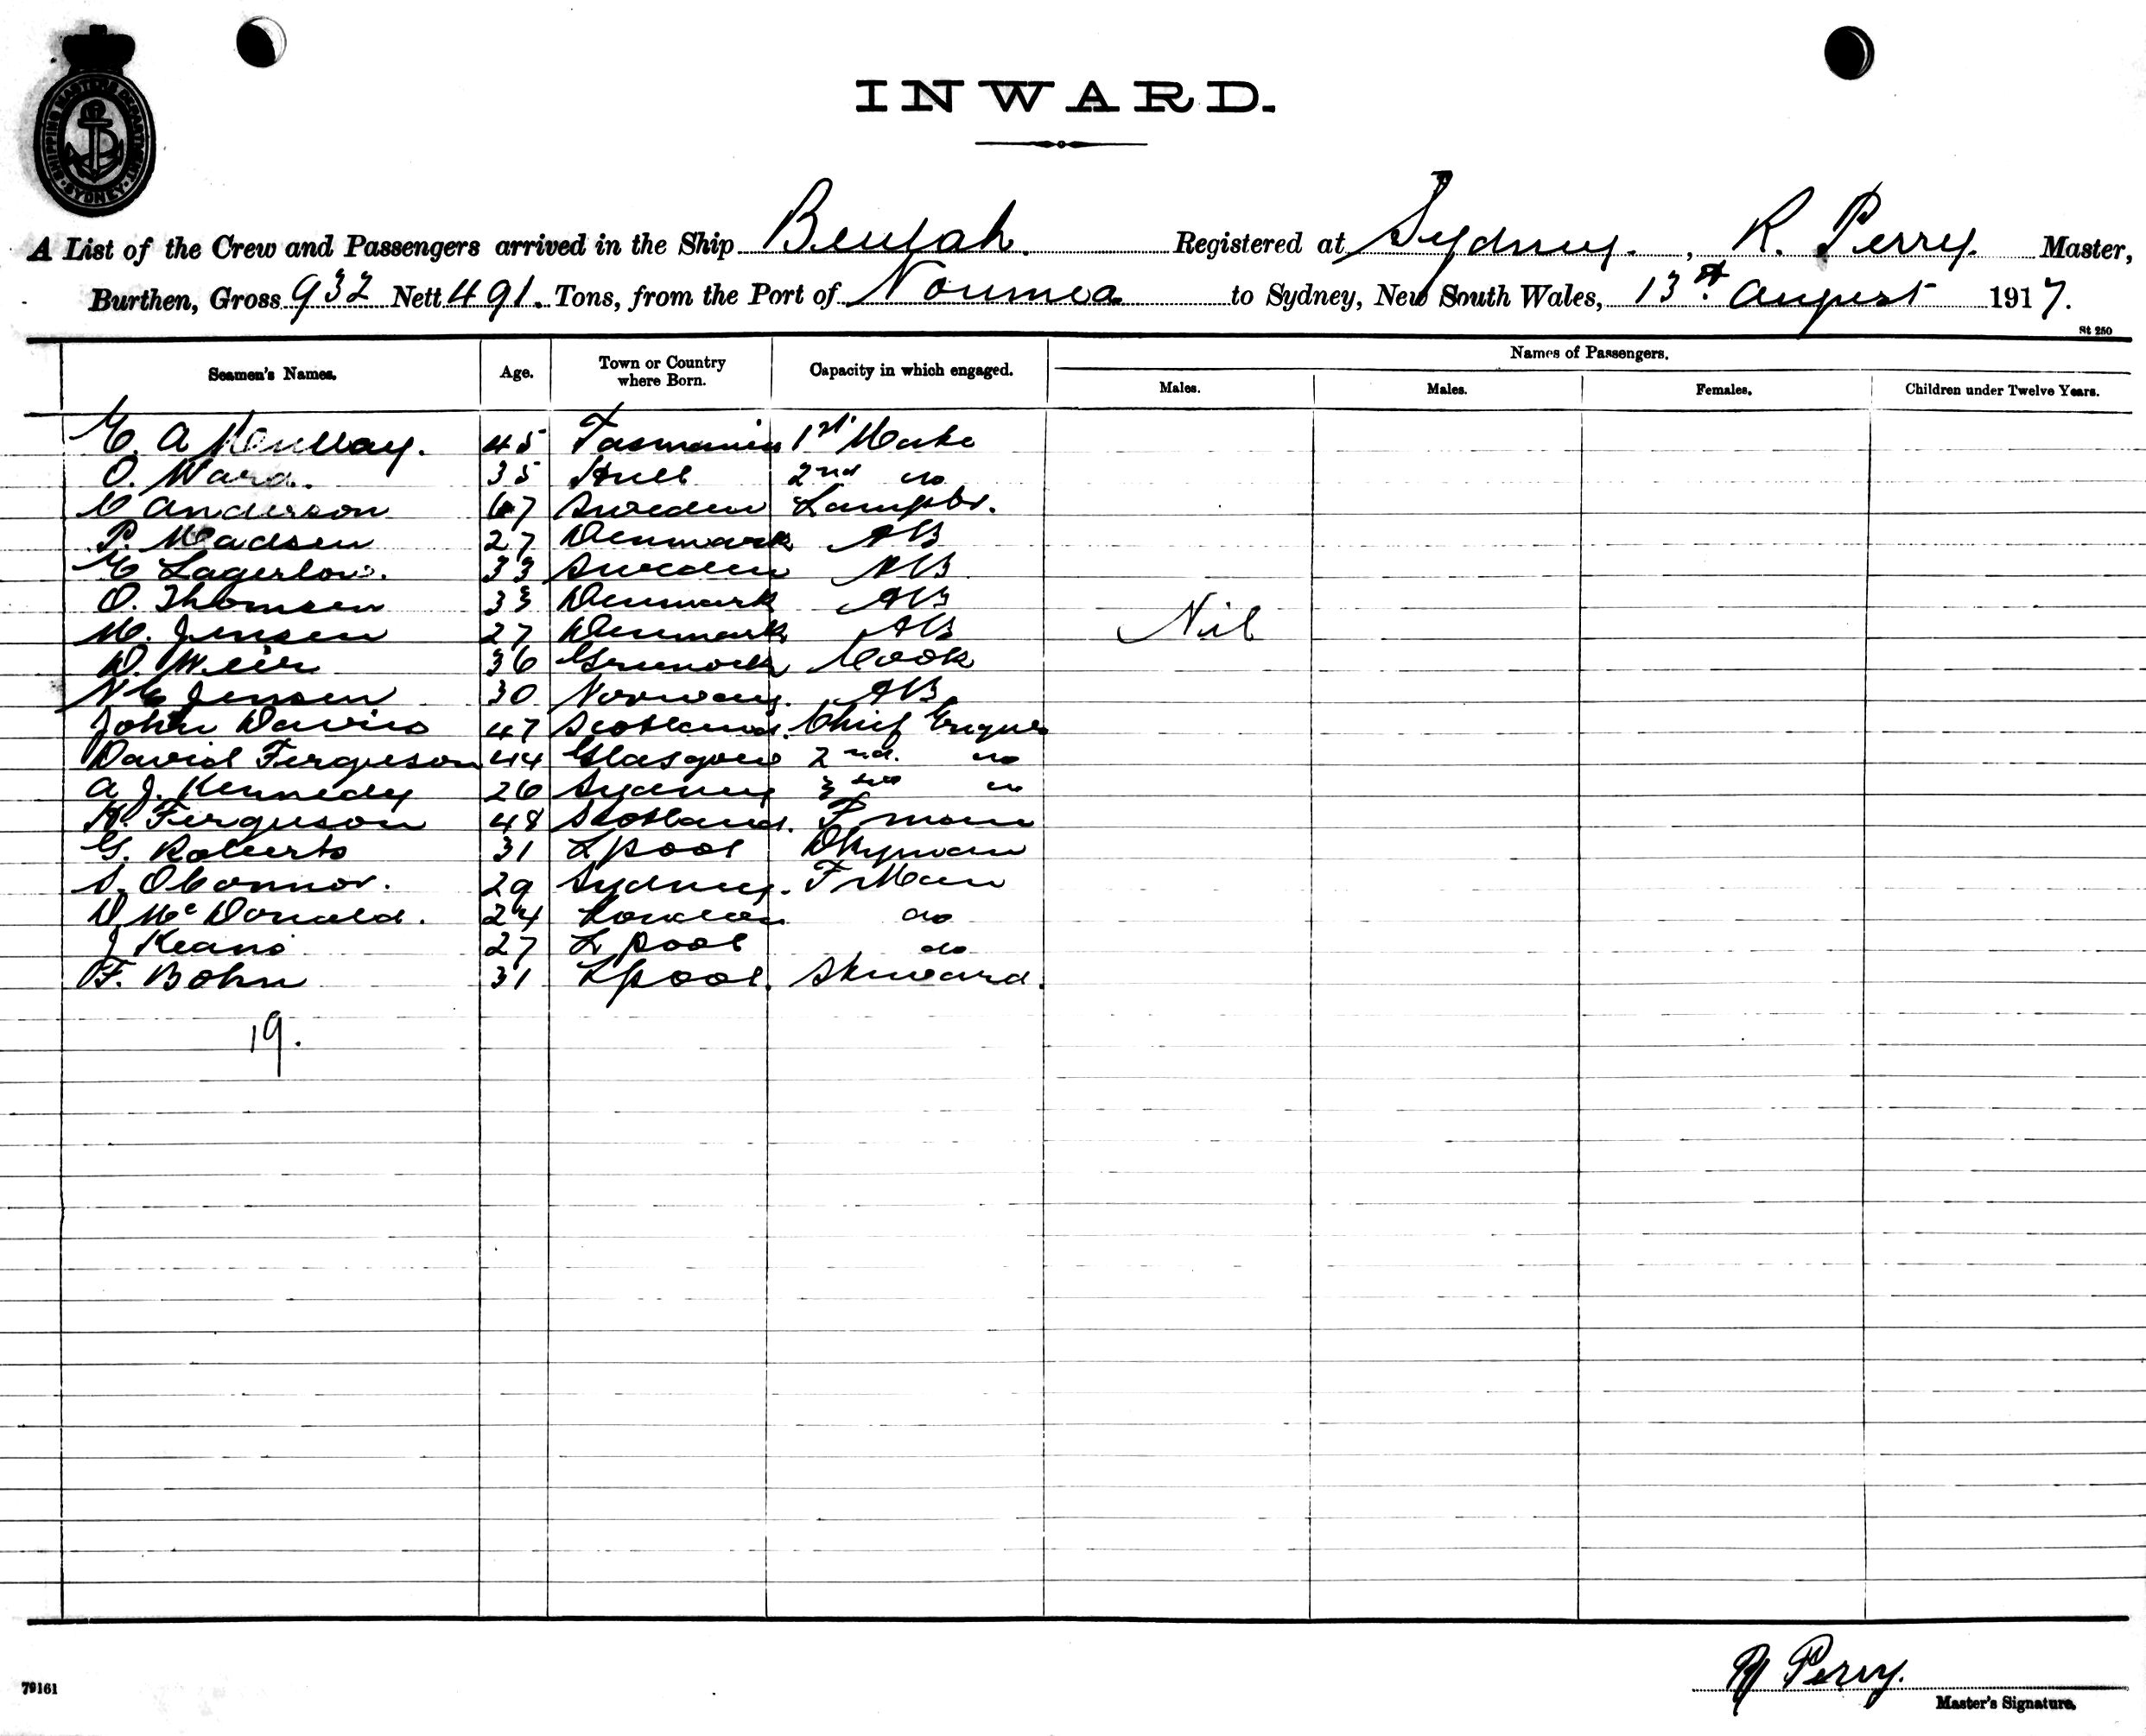 SHIPPING MASTER'S DEPARTMENT
SYDNEY
INWARD.
A List of the Crew and Passengers arrived in the Ship Beulah. Registered at Sydney. , R. Perry. Master,
Burthen, Gross 932 Nett 491. Tons, from the Port of Noumea to Sydney, New South Wales, 13st August 1917.
St 250
Seamen's Names. Age. Town or Country where Born. Capacity in which engaged. Names of Passengers.
Males. Males. Females. Children under Twelve Years.
A 45 Tasmania 1st Mate
O. Ward. 35 Hull 2nd do
C Anderson 67 Sweden Lamptr.
P. Madsen 27 Denmark AB
Lagerlow. 33 Sweden AB
O. Thomsen 33 Denmark AB
M. Jensen 27 Denmark AB Nil
D. Weir 36 Greenock Cook
Jensen 30 Norway. AB
John Davies 47 Scotland. Chief Enginr
David Ferguson 44 Glasgow 2nd. do
A J. Kennedy 26 Sydney do
Ferguson 48 Scotland. F man
G. Roberts 31 Lpool Dkyman
O'Connor. 29 Sydney. F Man
D McDonald. 24 London do
J Keans 27 Lpool do
F. Bohn 31 Lpool. Steward.
19.
R Perry.
79161
Master's Signature.